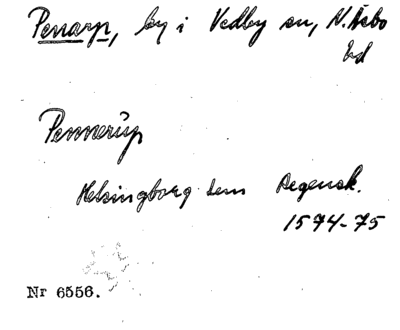 Penarp, by i Vedby sn, N. Åsbo
hd
Pennerup
Helsingborg Lens Regensk.
1574-75
Nr 6556.